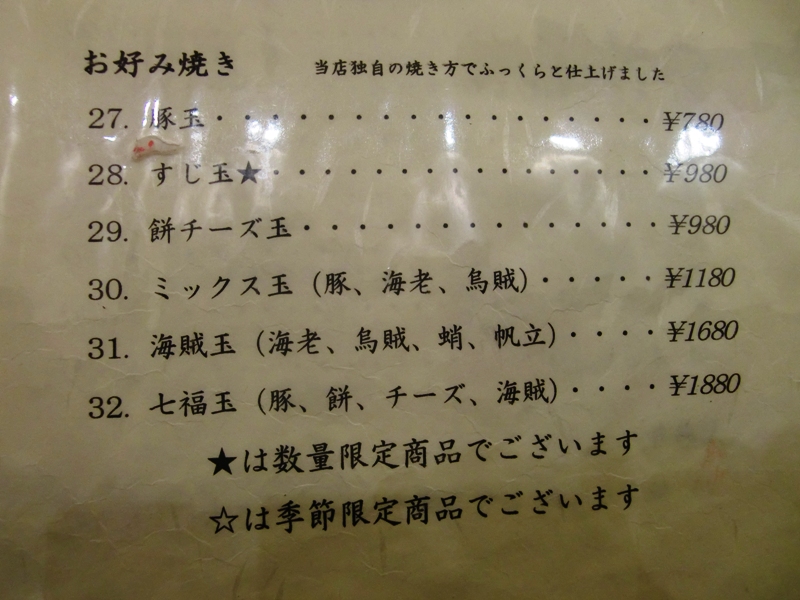 お好み焼き 当店独自の焼き方でふっくらと仕上げました
27. 豚玉・・・・・・・・・・・・・・・・¥780
28. すじ玉★・・・・・・・・・・・・・・¥980
29. 餅チーズ玉・・・・・・・・・・・・・¥980
30. ミックス玉（豚、海老、烏賊）・・・・・¥1180
31. 海賊玉（海老、烏賊、蛸、帆立）・・・・¥1680
32. 七福玉（豚、餅、チーズ、海賊）・・・・¥1880
★は数量限定商品でございます
☆は季節限定商品でございます